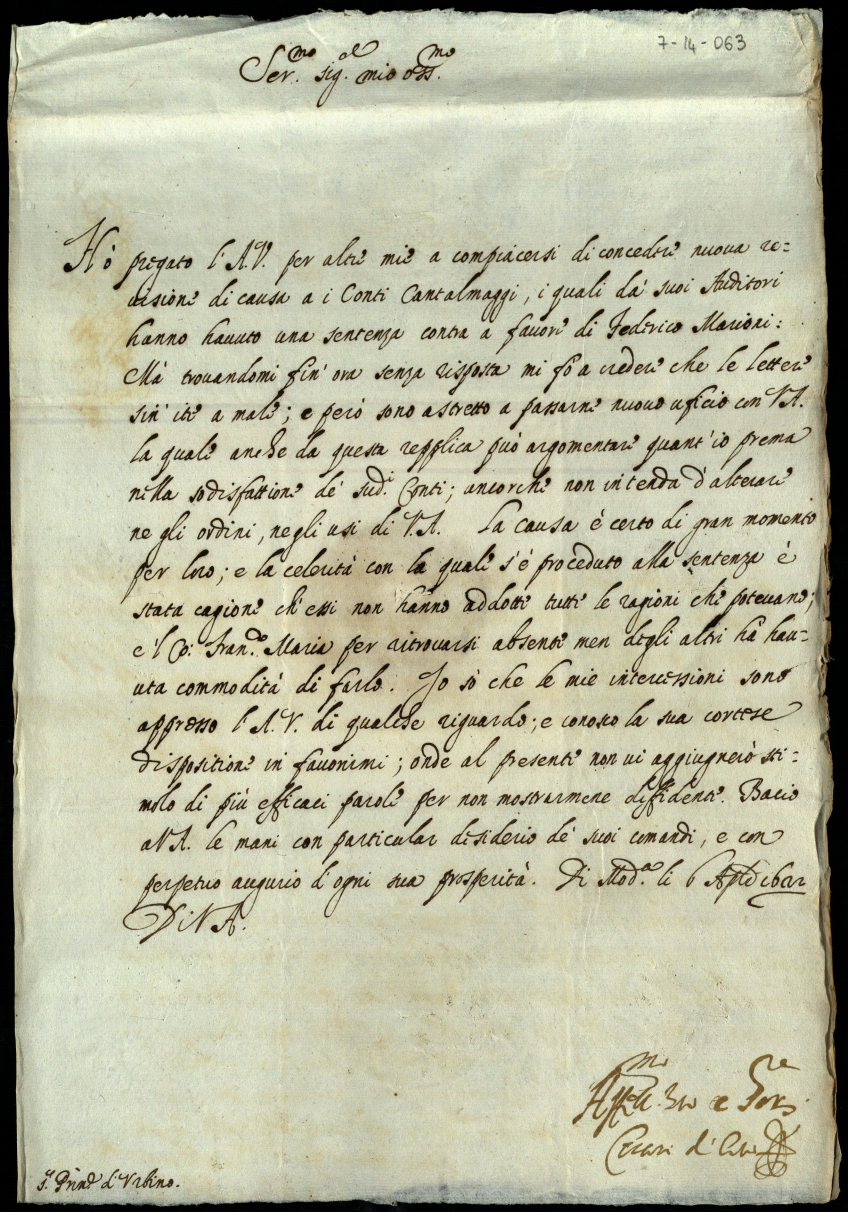 7-14-063
Ser.mo sig.r mio oss.mo
Hò pregato l'A.V. per altre mie a compiacersi di concedere nuova re=
uisione di causa a i Conti Cantalmaggi, i quali dà suoi Auditori
hanno hauuto una sentenza contra a fauore di Federico Marioni:
Mà trouandomi fin'ora senza risposta mi fò a credere che le lettere
sin'ite a male; e però sono astretto a passarne nuouo uficio con V.A.
la quale anche da questa repplica può argomentare quant'io prema
nella sodisfattione de' sud.i Conti; ancorche non intenda d'alterare
ne gli ordini, ne gli usi di V.A. La causa è certo di gran momento
per loro; e la celerità con la quale s'è proceduto alla sentenza è
stata cagione ch'essi non hanno addotte tutte le ragioni che poteuano;
e'l Co: Fran.co Maria per ritrouarsi absente men degli altri hà hau=
uta commodità di farlo. Io sò che le mie intercessioni sono
appresso l'A.V. di qualche riguardo; e conosco la sua cortese
dispositione in fauorirmi; onde al presente non ui aggiugnerò sti=
molo di più efficaci parole per non mostrarmene diffidente. Bacio
a V.A. le mani con particular desiderio de' suoi comandi, e con
perpetuo augurio d'ogni sua prosperità. Di Mod.a li 6 Aple
Di V.A.
Aff.mo
Cesare d'Este
S.r Prin.e d'Urbino.